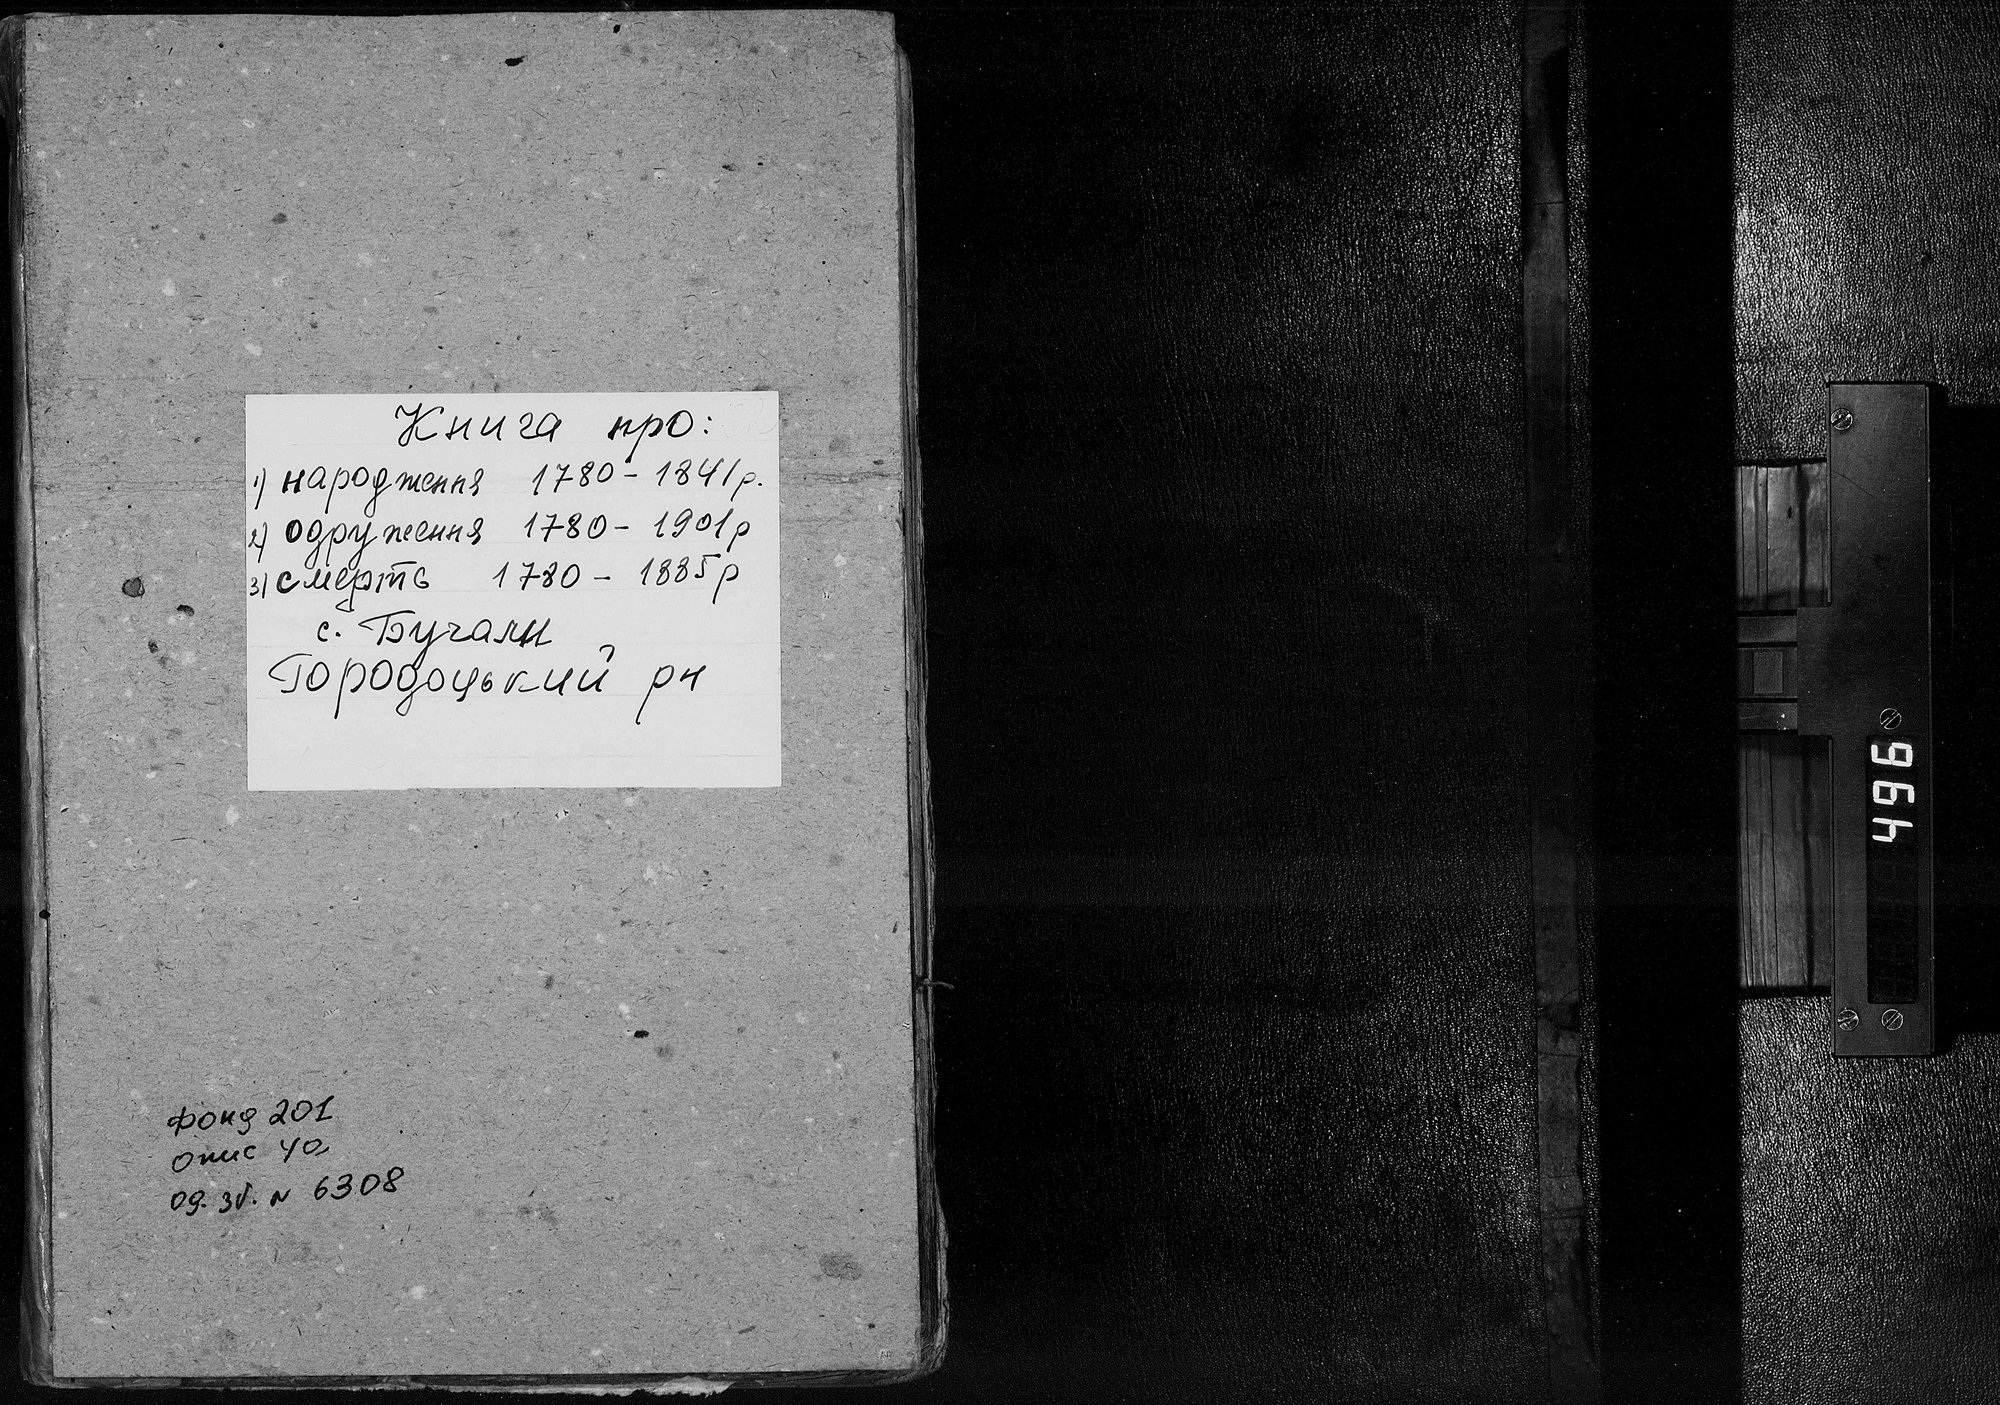 Книга про:
1) народження 1780 - 1841р.
2) одруження 1780 - 1901р
3) смерть 1780 - 1885р
с. Бучали
Городоцький рн
фонд 201
опис 4а
од. зб. N 6308
496